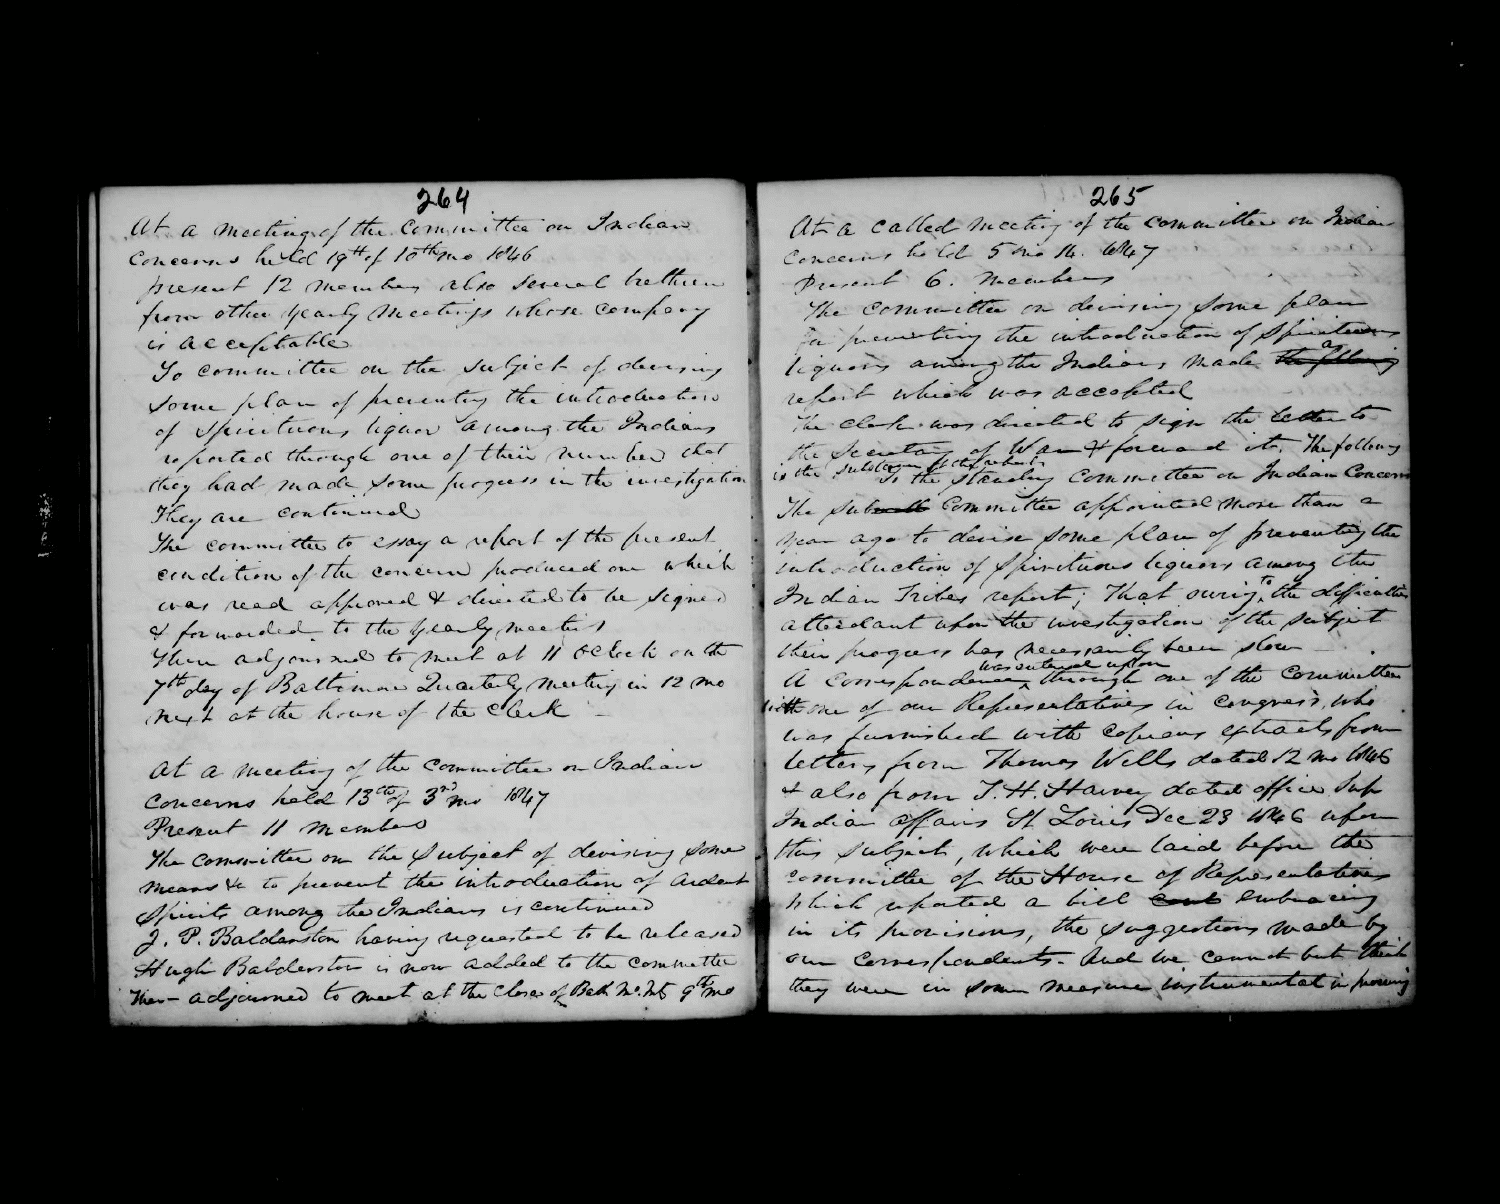 264
At a meeting of the Committee on Indian
Concerns held 19th of 10th mo 1846
Present 12 members also several brethren
from other Yearly Meetings whose company
is acceptable
To committee on the subject of devising
some plan of preventing the introduction
of Spirituous liquor among the Indians
reported through one of their number that
they had made some progress in the investigation
They are continued
The committee to essay a report of the present
condition of the concern produced one which
was read approved & directed to be signed
& forwarded to the Yearly meeting
Then adjourned to meet at 11 oclock on the
7th day of Baltimore Quarterly Meeting in 12 mo
next at the house of the Clerk
At a meeting of the committee on Indian
Concerns held 13th of 3rd mo 1847
Present 11 members
The committee on the Subject of devising some
means &c to prevent the introduction of Ardent
Spirits among the Indians is continued
J. P. Balderston having requested to be released
Hugh Balderston is now added to the committee
Then adjourned to meet at the close of Balt. Mo. Mt 9th mo
265
At a called meeting of the committee on Indian
Concerns held 5 mo 14. 1847
Present 6. members
The committee on devising some plan
for preventing the introduction of Spirituous
liquors among the Indians made the following a
report which was accepted
The clerk was directed to sign the letter to
the Secretary of War & forward it. The following
is the substance of the report
To the Standing Committee on Indian Concerns
The sub Committee appointed more than a
year ago to devise some plan of preventing the
introduction of Spirituous liquors among the
Indian Tribes report; That owing to the difficulties
attendant upon the investigation of the subject
their progress has necessarily been slow
A correspondence was entered upon through one of the Committee
with one of our Representatives in Congress, who
was furnished with copious extracts from
letters from Thomas Wells dated 12 mo 1846
& also from T. H. Harvey dated office Sup
Indian affairs St Louis Dec 23 1846 upon
this subject, which were laid before the
committee of the House of Representatives
which reported a bill embracing
in its provisions, the suggestions made by
our correspondents. And we cannot but think
they were in some measure instrumental in procuring